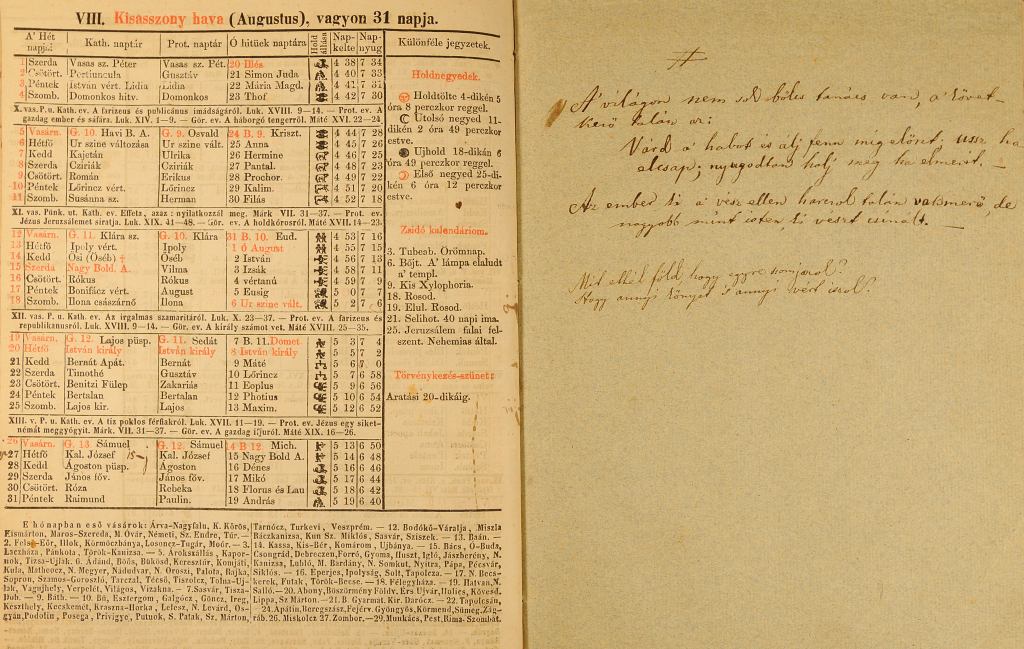 VIII. Kisasszony hava (Augustus), vagyon 31 napja.
A' Hét napjai Kath. naptár Prot. naptár Ó hitüek naptára Hold állása Nap-kelte Nap-nyug Különféle jegyzetek.
1 Szerda Vasas sz. Péter Vasas sz. Pét. 20 Illés 4 38 7 34
2 Csötört. Portiuncula Gusztáv 21 Simon Juda 4 40 7 33
3 Péntek István vért. Lidia Lidia 22 Mária Magd. 4 41 7 31
4 Szomb. Domonkos hitv. Domonkos 23 Thof 4 42 7 30
X. vas. P. u. Kath. ev. A farizeus és publicánus imádságáról. Luk. XVIII. 9—14. — Prot. ev. A
gazdag ember és sáfára. Luk. XIV. 1—9. — Gör. ev. A háborgó tengerről. Máté XVI. 22—24.
5 Vasárn. G. 10. Havi B. A. G. 9. Osvald 24 B. 9. Kriszt. 4 44 7 28
6 Hétfő Ur szine változása Ur szine vált. 25 Anna 4 45 7 26
7 Kedd Kajetán Ulrika 26 Hermine 4 46 7 25
8 Szerda Cziriák Cziriák 27 Pantal. 4 48 7 23
9 Csötört. Román Erikus 28 Prochor. 4 49 7 22
10 Péntek Lőrincz vért. Lőrincz 29 Kalim. 4 51 7 20
11 Szomb. Susánna sz. Herman 30 Filás 4 52 7 18
XI. vas. Pünk. ut. Kath. ev. Effeta, azaz: nyilatkozzál meg. Márk VII. 31—37. — Prot. ev.
Jézus Jeruzsálemet siratja. Luk. XIX. 41—48. — Gör. ev. A holdkórosról. Máté XVII. 14—23.
12 Vasárn. G. 11. Klára sz. G. 10. Klára 31 B. 10. Eud. 4 53 7 16
13 Hétfő Ipoly vért. Ipoly 1 ó August 4 55 7 15
14 Kedd Ősi (Őséb) † Őséb 2 István 4 56 7 13
15 Szerda Nagy Bold. A. Vilma 3 Izsák 4 58 7 11
16 Csötört. Rókus Rókus 4 vértanú 4 59 7 9
17 Péntek Bonifácz vért. August 5 Eusig 5 0 7 7
18 Szomb. Ilona császárnő Ilona 6 Ur szine vált. 5 2 7 6
XII. vas. P. u. Kath. Az irgalmas szamaritáról. Luk. X. 23—37. — Prot. ev. A farizeus és
republikanusról. Luk. XVIII. 9—14. — Gör. ev. A király számot vet. Máté XVIII. 25—35.
19 Vasárn. G. 12. Lajos püsp. G. 11. Sedát 7 B. 11. Domet. 5 3 7 4
20 Hétfő István király István király 8 István király 5 5 7 2
21 Kedd Bernát Apát. Bernát 9 Máté 5 6 7 0
22 Szerda Timothé Gusztáv 10 Lőrincz 5 7 6 58
23 Csötört. Benitzi Fülep Zakariás 11 Eoplus 5 9 6 56
24 Péntek Bertalan Bertalan 12 Photius 5 10 6 54
25 Szomb. Lajos kir. Lajos 13 Maxim. 5 12 6 52
XIII. v. P. u. Kath. ev. A tiz poklos férfiakról. Luk. XVII. 11—19. — Prot. ev. Jézus egy siket-
némát meggyógyit. Márk. VII. 31—37. — Gör. ev. A gazdag ifjuról. Máté XIX. 16—26.
26 Vasárn. G. 13. Sámuel G. 12. Sámuel 14 B 12 Mich. 5 13 6 50
27 Hétfő Kal. József Kal. József 15 Nagy Bold A. 5 14 6 48
28 Kedd Ágoston püsp. Ágoston 16 Dénes 5 16 6 46
29 Szerda János főv. János főv. 17 Mikó 5 17 6 44
30 Csötört. Róza Rebeka 18 Florus és Lau 5 18 6 42
31 Péntek Raimund Paulin. 19 András 5 19 6 40
Holdnegyedek.
Holdtölte 4-dikén 5
óra 8 perczkor reggel.
Utolsó negyed 11-
dikén 2 óra 49 perczkor
estve.
Ujhold 18-dikán 6
óra 49 perczkor reggel.
Első negyed 25-di-
kén 6 óra 12 perczkor
estve.
Zsidó kalendáriom.
3. Tubeab. Örömnap.
6. Böjt. A' lámpa elaludt
a' templ.
9. Kis Xylophoria.
18. Rosod.
19. Elul. Rosod.
21. Selihot. 40 napi ima.
25. Jeruzsálem falai fel-
szent. Nehemias által.
Törvénykezés-szünet:
Aratási 20-dikáig.
E hónapban eső vásárok: Árva-Nagyfalu, K. Körös,
Kismárton, Maros-Szereda, M. Óvár, Németi, Sz. Endre, Túr. —
2. Felső-Eőr, Illok, Körmöczbánya, Losoncz-Tugár, Moór. — 3.
Laczháza, Pánkota, Török-Kanizsa. — 5. Árokszállás, Kapor-
nok, Tizsa-Ujlak. 6. Ádánd, Böös, Bükösd, Keresztúr, Komjáti,
Kula, Matheocz, N. Megyer, Nádudvar, N. Oroszi, Palota, Rajka,
Sopron, Szamos-Goroszló, Tarczal, Técső, Tiszolcz, Tolna-Uj-
lak, Vagujhely, Verpelét, Világos, Vizakna. — 7. Sasvár, Tisza-
Dob. — 9. Báth. — 10. Bű, Esztergom, Galgócz, Göncz, Ireg,
Keszthely, Kecskemét, Kraszna-Horka, Lelesz, N. Levárd, Os-
gyán, Podolin, Posega, Privigye, Putnok, S. Patak, Sz. Márton,
Tarnócz, Turkevi, Veszprém. — 12. Bodókő-Váralja, Miszla
Ráczkanizsa, Kun Sz. Miklós, Sasvár, Sziszek. — 13. Baán. —
14. Kassa, Kis-Bér, Komárom, Ujbánya. — 15. Bács, Ó-Buda,
Csongrád, Debreczen, Forró, Gyoma, Huszt, Igló, Jászberény, N.
Kanizsa, Lubló, M. Bardány, N. Somkut, Nyitra, Pápa, Pécsvár,
Siklós. — 16. Eperjes, Ipolyság, Solt, Tapolcza. — 17. N. Becs-
kerek, Futak, Török-Becse. — 18. Félegyháza. — 19. Hatvan, N.
Salló. — 20. Abony, Böszörmény Földv. Érs. Ujvár, Holics, Kövesd,
Lippa, Sz Márton. — 21. B. Gyarmat. Kir. Darócz. — 22. Tapolcsán,
— 24. Apátin, Beregszász, Fejérv. Gyöngyös, Körmend, Sümeg, Zág-
ráb. 26. Miskolcz 27. Zombor. — 29. Munkács, Pest, Rima-Szombat.
A' világon nem sok bölcs tanács van, a' követ-
kező talán az:
Várd a' habot is állj fenn míg elönt, ussz ha
elcsap; nyugodtan halj meg ha elmerit. —
Az ember ki a' vész ellen harczol talán vakmerő, de
nagyobb mint isten ki vészt csinált. —
Mit ethél föld hogy egyre szomjazol?
Hogy annyi könyet s annyi vért iszol?